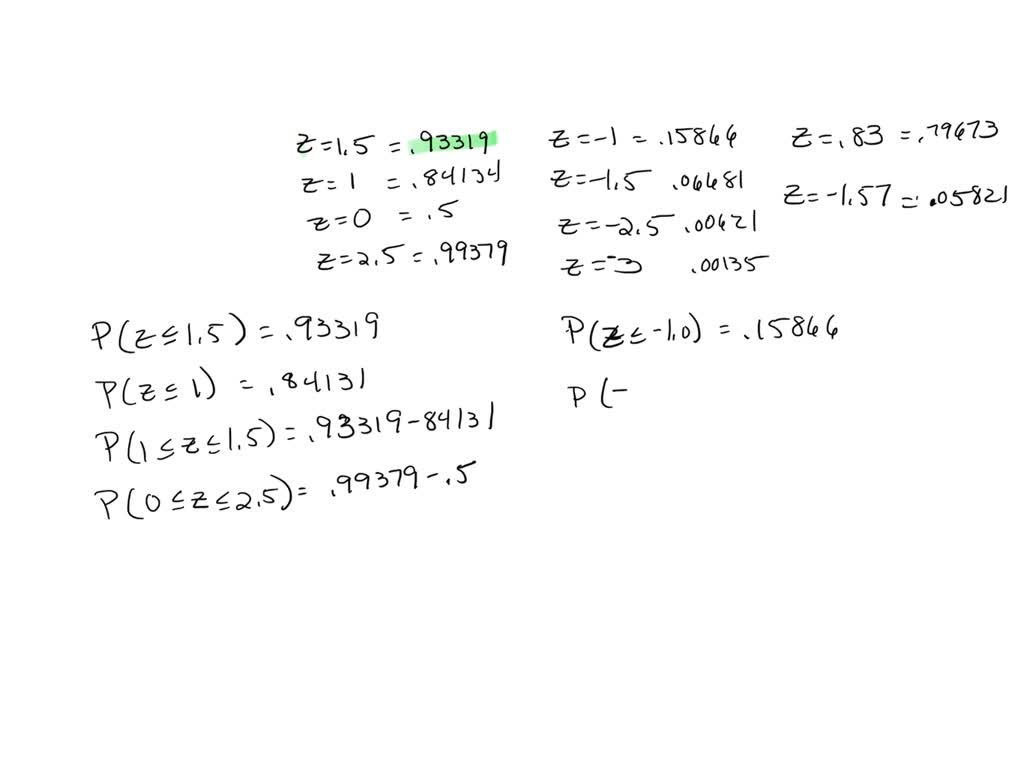 z=1.5 = .93319
z=1 = .84134
z=0 = .5
z=2.5 = .99379
z=-1 = .15866
z=-1.5 .06681
z=-2.5 .00621
z=-3 .00135
z=.83 = .79673
z=-1.57 = .05821
P(z≤1.5) = .93319
P(z≤1) = .84131
P(1≤z≤1.5) = .93319-84131
P(0≤z≤2.5) = .99379-.5
P(z≤-1.0) = .15866
P(-